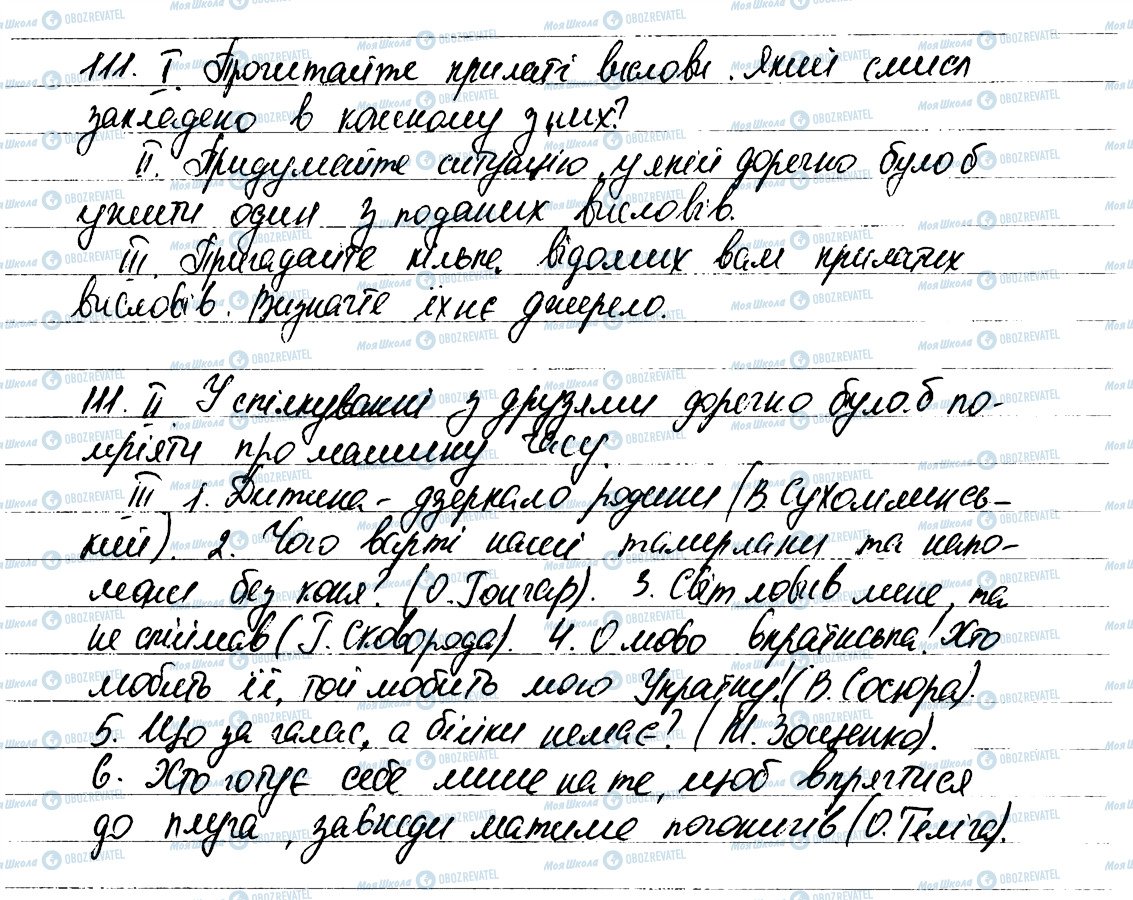 111. I. Прочитайте крилаті вислови. Який смисл
закладено в кожному з них?
II. Придумайте ситуацію, у якій доречно було б
ужити один з поданих висловів.
III. Пригадайте кілька відомих вам крилатих
висловів. Визначте їхнє джерело.
111. II У спілкуванні з друзями доречно було б по-
мріяти про машину часу.
III 1. Дитина - дзеркало родини (В. Сухомлинсь-
кий). 2. Чого варті наші тамерлани та напо-
леони без коня! (О. Гончар). 3. Світ ловив мене, та
не спіймав (Г. Сковорода). 4. О мово вкраїнська! Хто
любить її, той любить мою Україну! (В. Сосюра).
5. Що за галас, а бійки немає? (М. Зощенко).
6. Хто готує себе лише на те, щоб впрягтися
до плуга, завжди матиме погоничів (О. Теліга).